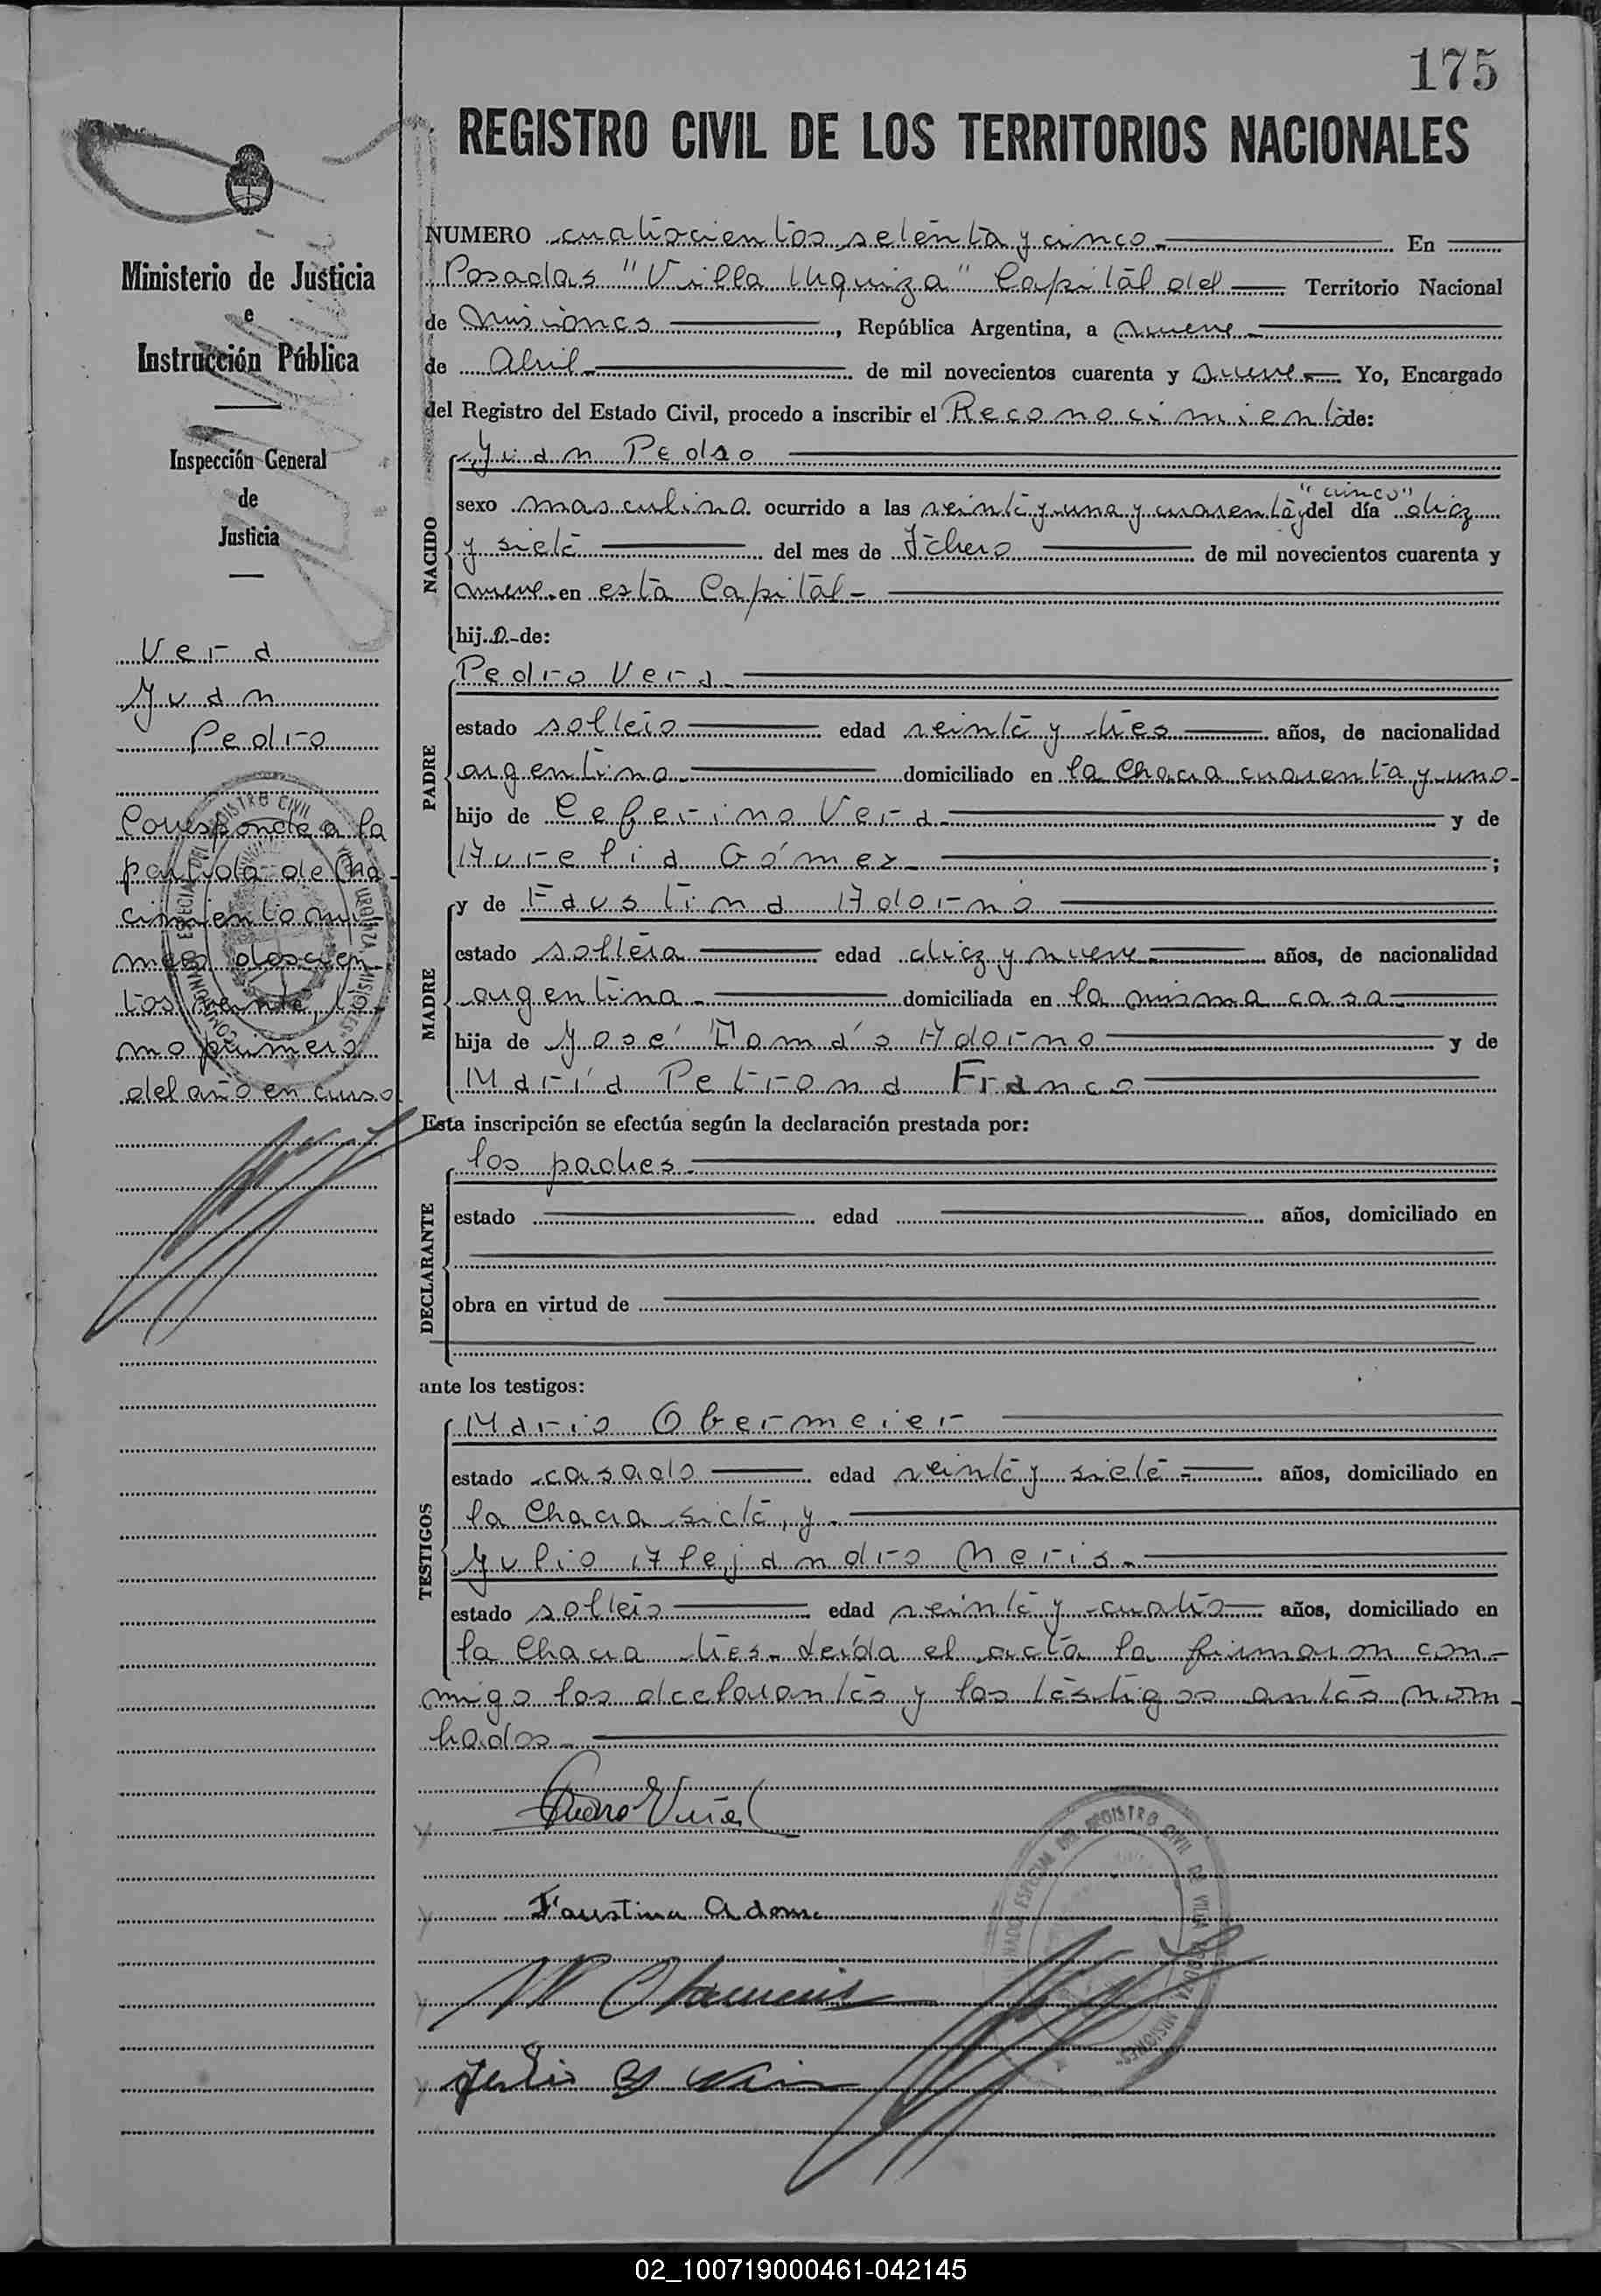 175
REGISTRO CIVIL DE LOS TERRITORIOS NACIONALES
Ministerio de Justicia
e
Instrucción Pública
Inspección General
de
Justicia
Vera
Juan
Pedro
Corresponde a la
partida de Na-
cimiento nú-
mero doscien
tos veinte,
mo primero
del año en curso
NUMERO cuatrocientos setenta y cinco.- En
Posadas "Villa Urquiza" Capital del Territorio Nacional
de Misiones, República Argentina, a nueve.-
de Abril.- de mil novecientos cuarenta y nueve.- Yo, Encargado
del Registro del Estado Civil, procedo a inscribir el Reconocimiento de:
NACIDO
Juan Pedro
"cinco"
sexo masculino. ocurrido a las veinte y una y cuarenta y del día diez
y siete del mes de Febrero de mil novecientos cuarenta y
nueve. en esta Capital-
hijo-de:
PADRE
Pedro Vera.-
estado soltero edad veinte y tres años, de nacionalidad
argentina.- domiciliado en la Chacra cuarenta y uno-
hijo de Ceferino Vera.- y de
Aurelia Gómez.- ;
MADRE
y de Faustina Adorno
estado soltera edad diez y nueve.- años, de nacionalidad
argentina.- domiciliada en la misma casa-
hija de José Tomás Adorno y de
María Petrona Franco
Esta inscripción se efectúa según la declaración prestada por:
DECLARANTE
los padres.-
estado edad años, domiciliado en
obra en virtud de
ante los testigos:
TESTIGOS
Mario Obermeier
estado casado edad veinte y siete.- años, domiciliado en
la Chacra siete, y.-
Julio Alejandro Neris.-
estado soltero edad veinte y cuatro años, domiciliado en
la Chacra tres.- Leída el acta la firmaron con-
migo los declarantes y los testigos antes nom-
brados.-
Pedro Vera
Faustina Adorno
Julio A
REGISTRO CIVIL DE VILLA URQUIZA MISIONES
02_100719000461-042145